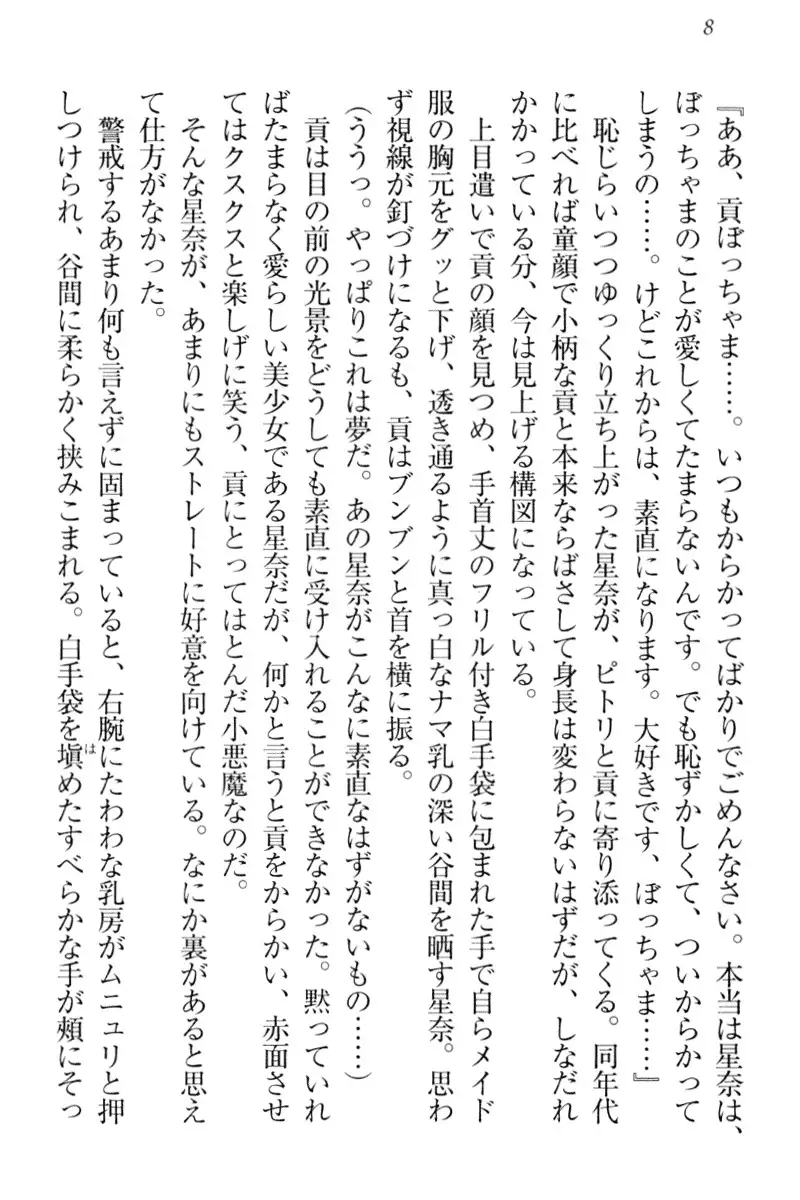 8
『ああ、貢ぼっちゃま……。いつもからかってばかりでごめんなさい。本当は星奈は、
ぼっちゃまのことが愛しくてたまらないんです。でも恥ずかしくて、ついからかって
しまうの……。けどこれからは、素直になります。大好きです、ぼっちゃま……』
恥じらいつつゆっくり立ち上がった星奈が、ピトリと貢に寄り添ってくる。同年代
に比べれば童顔で小柄な貢と本来ならばさして身長は変わらないはずだが、しなだれ
かかっている分、今は見上げる構図になっている。
上目遣いで貢の顔を見つめ、手首丈のフリル付き白手袋に包まれた手で自らメイド
服の胸元をグッと下げ、透き通るように真っ白なナマ乳の深い谷間を晒す星奈。思わ
ず視線が釘づけになるも、貢はブンブンと首を横に振る。
（ううっ。やっぱりこれは夢だ。あの星奈がこんなに素直なはずがないもの……）
貢は目の前の光景をどうしても素直に受け入れることができなかった。黙っていれ
ばたまらなく愛らしい美少女である星奈だが、何かと言うと貢をからかい、赤面させ
てはクスクスと楽しげに笑う、貢にとってはとんだ小悪魔なのだ。
そんな星奈が、あまりにもストレートに好意を向けている。なにか裏があると思え
て仕方がなかった。
警戒するあまり何も言えずに固まっていると、右腕にたわわな乳房がムニュリと押
しつけられ、谷間に柔らかく挟みこまれる。白手袋を塡めたすべらかな手が頰にそっ
は